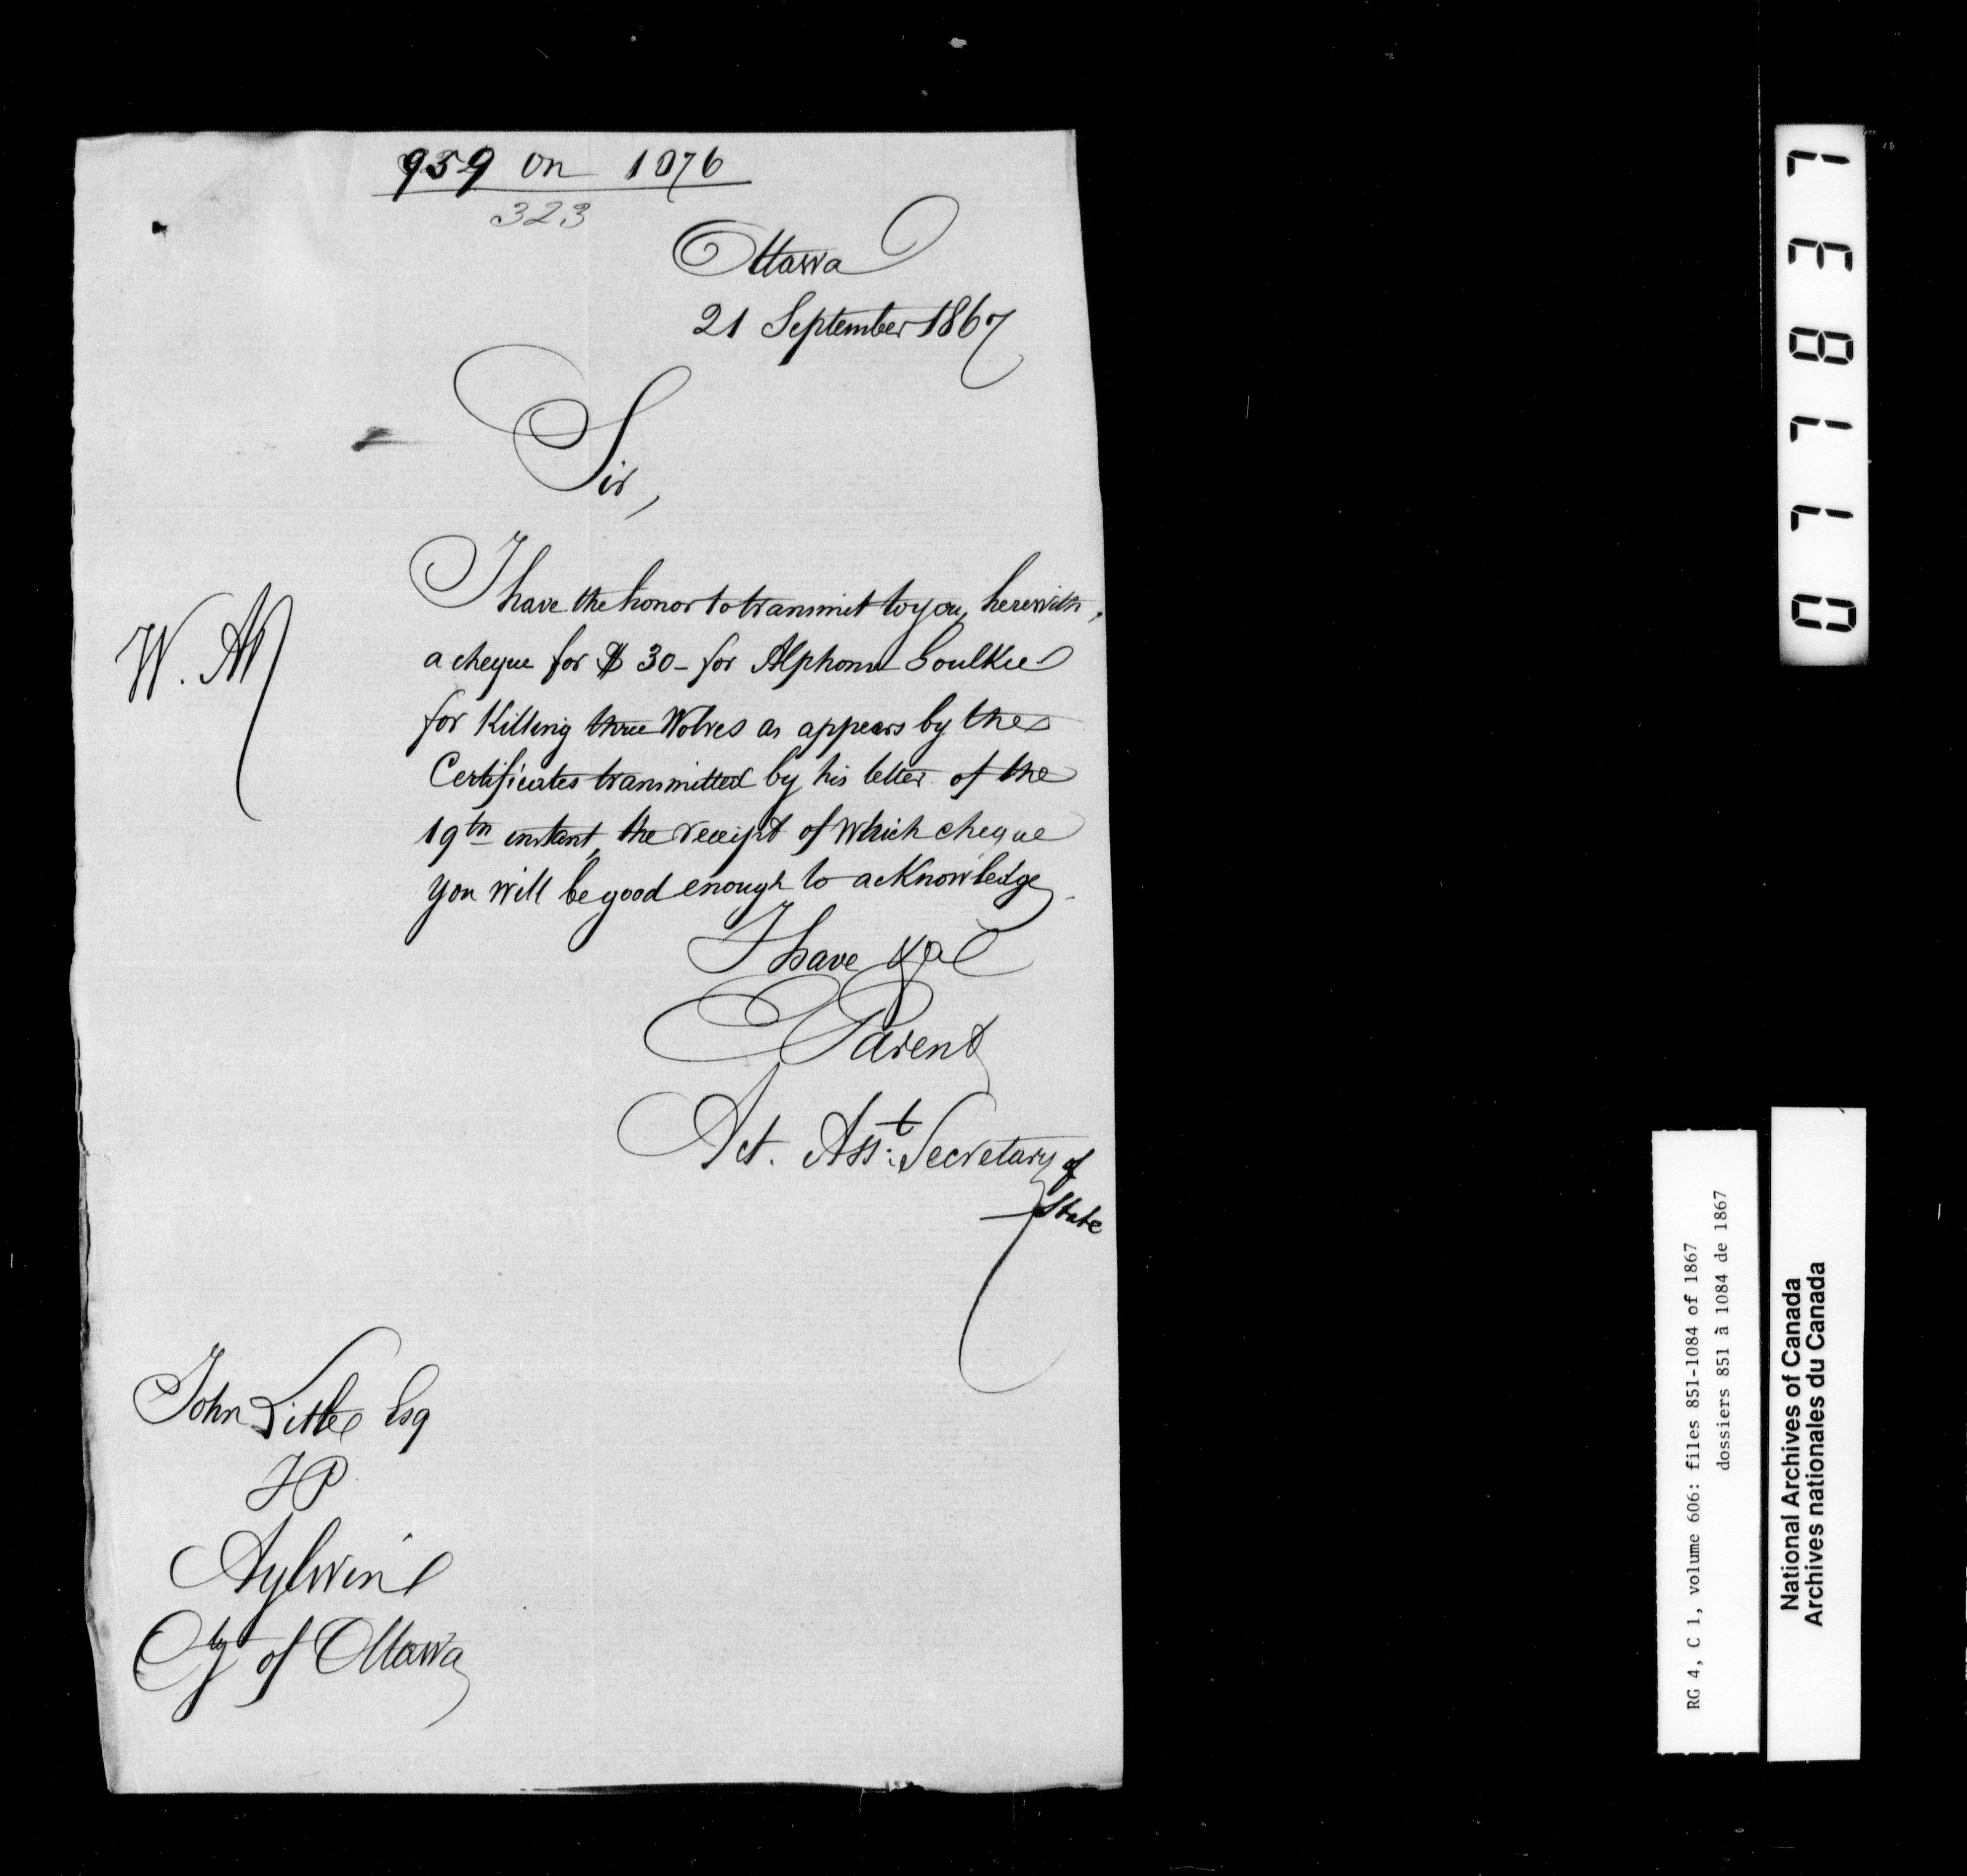 959 on 1076
323
Ottawa
21 September 1867
Sir,
I have the honor to transmit to you, herewith,
a cheque for $30- for Alphonse
for Killing three Wolves as appears by the
Certificates transmitted by his letter of the
19th instant, the receipt of which cheque
you will be good enough to acknowledge.
I have &a
E Parent
Act. Asst: Secretary of
State
W.
John Little Esq
JP
Aylwin
Cty of Ottawa
077837
RG 4, C 1, volume 606: files 851-1084 of 1867
dossiers 851 à 1084 de 1867
National Archives of Canada
Archives nationales du Canada